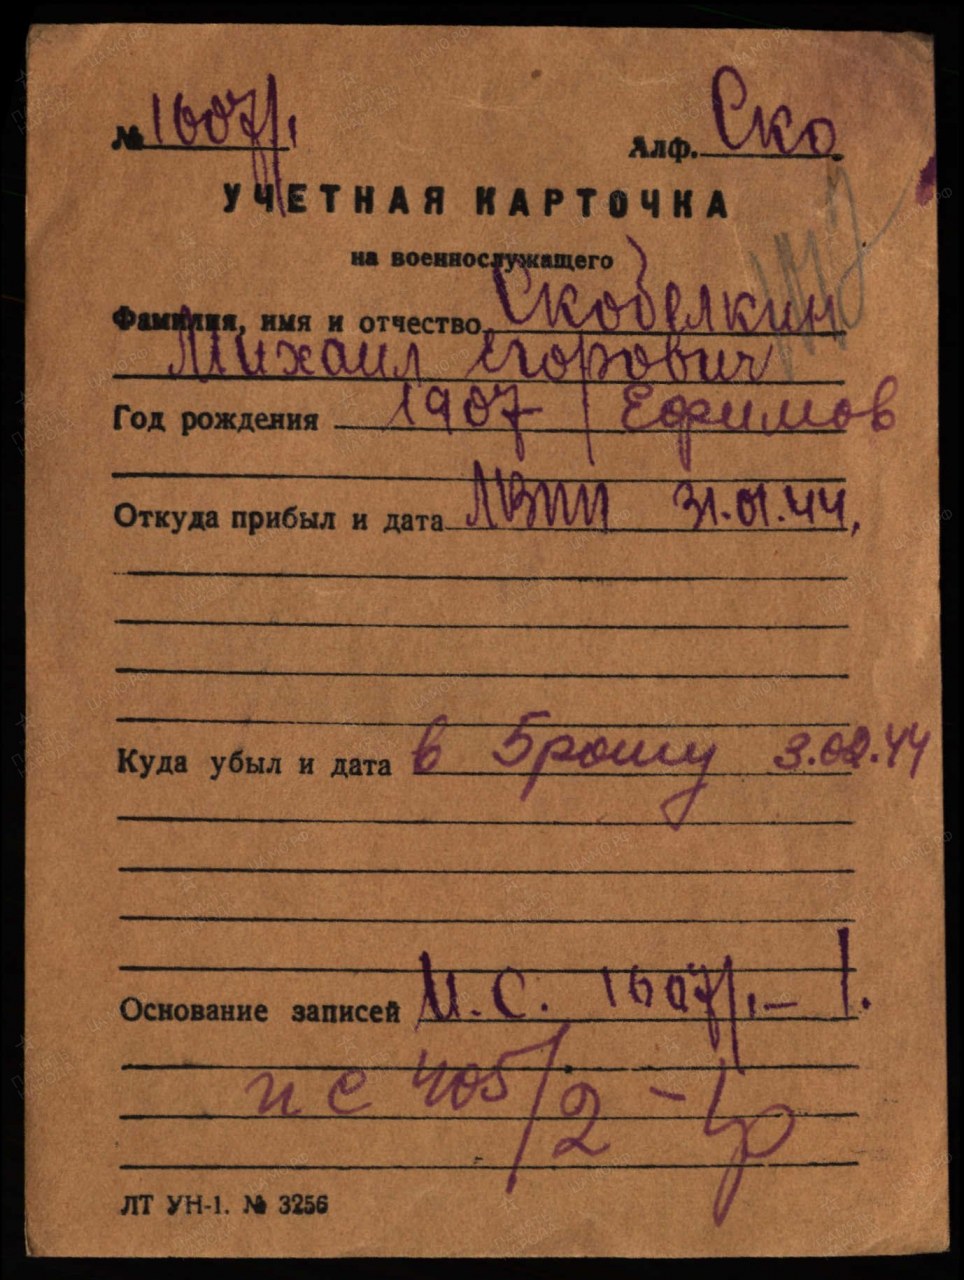 № 1607/1
Алф. Ско
УЧЕТНАЯ КАРТОЧКА
на военнослужащего
Фамилия, имя и отчество Скобелкин
Михаил Егорович
Год рождения 1907 / Ефимов
Откуда прибыл и дата ЛВПП 31.01.44,
Куда убыл и дата в 5 роту 3.02.44
Основание записей И.С. 1607/1. – 1.
ис 405/2 –
ЛТ УН-1. № 3256